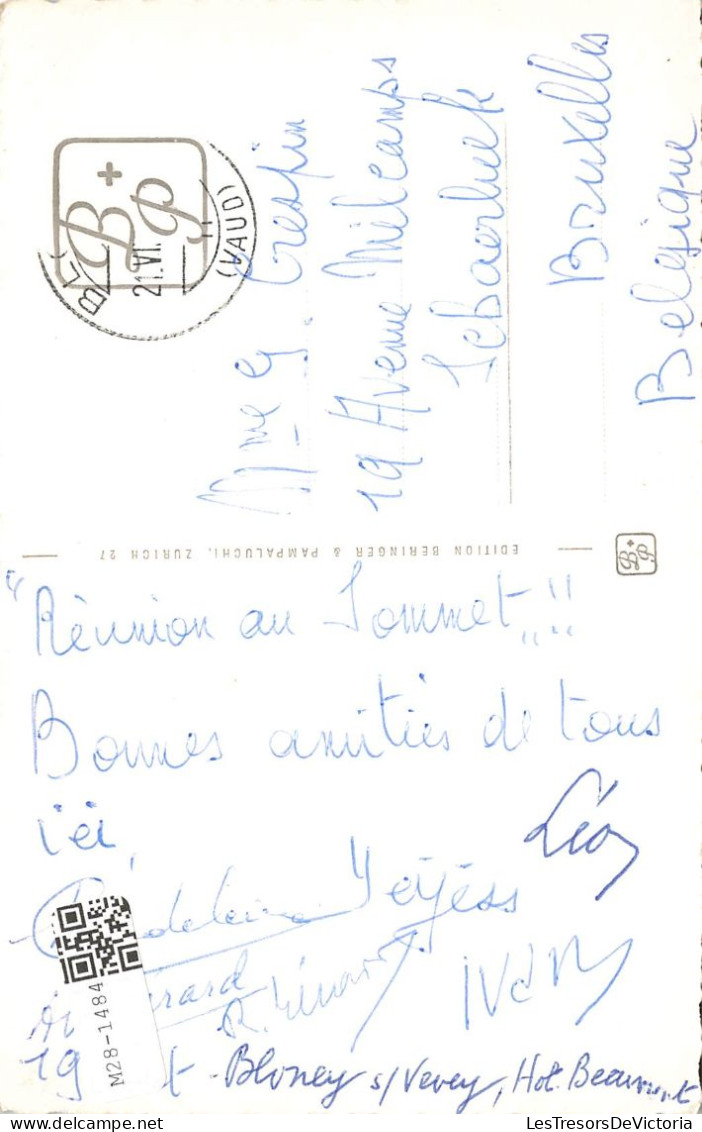 BL
21.VI.
(VAUD)
B+P
Mme G. Crespin
19 Avenue Milcamps
Schaerbeek
Bruxelles
Belgique
EDITION BERINGER & PAMPALUCHI, ZURICH 27
B+P
"Réunion au Sommet"!!
Bonnes amitiés de tous
ici,
Léon
Yvan
19
Blonay s/Vevey, Hot. Beaumont
M28-1484
LesTresorsDeVictoria